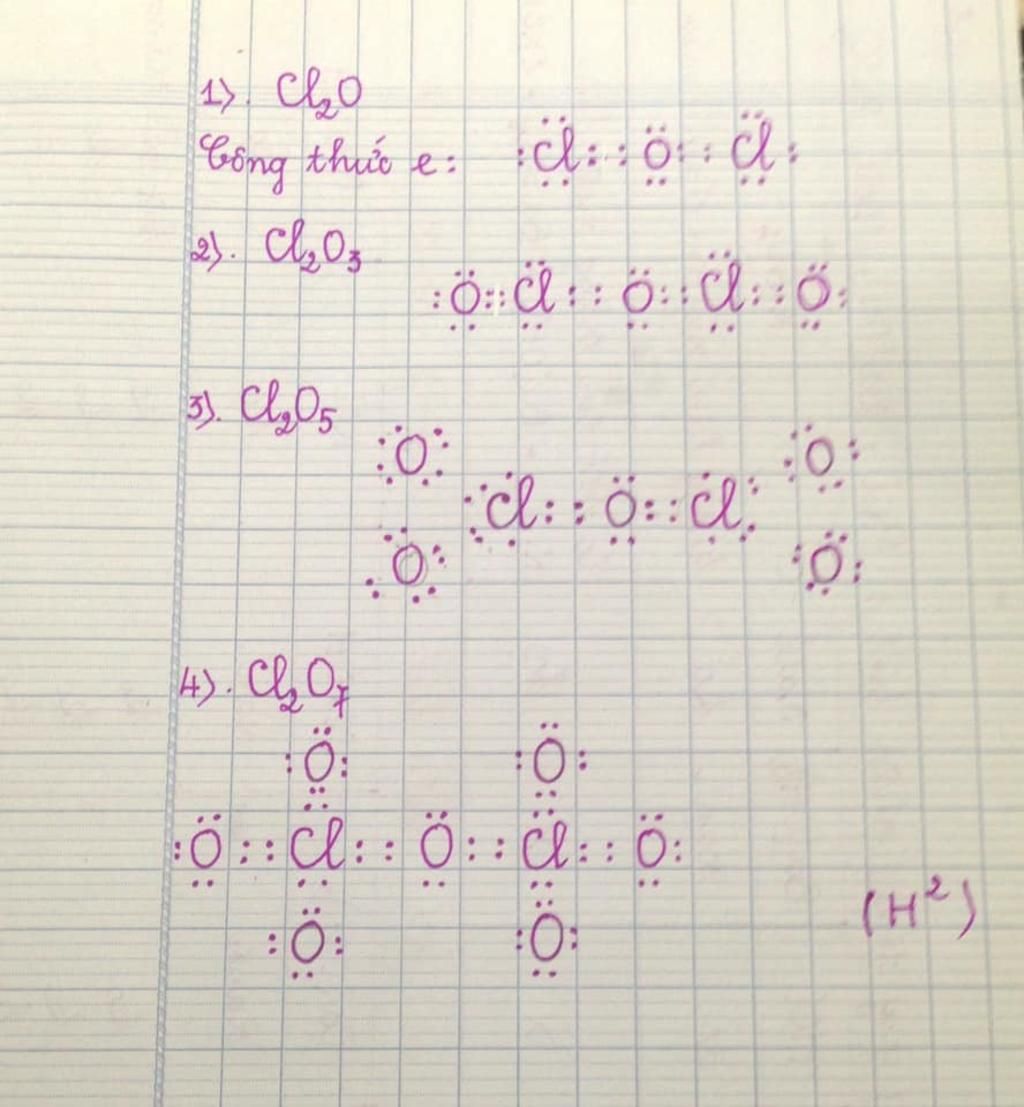 1). Cl₂O
Công thức e: :Cl: :O: :Cl:
2). Cl₂O₃
:O::Cl: :O: :Cl: :O:
3). Cl₂O₅
:O: :O:
:Cl: :O: :Cl:
:O: :O:
4). Cl₂O₇
:O: :O:
:O: :Cl: :O: :Cl: :O:
(H²)
:O: :O: